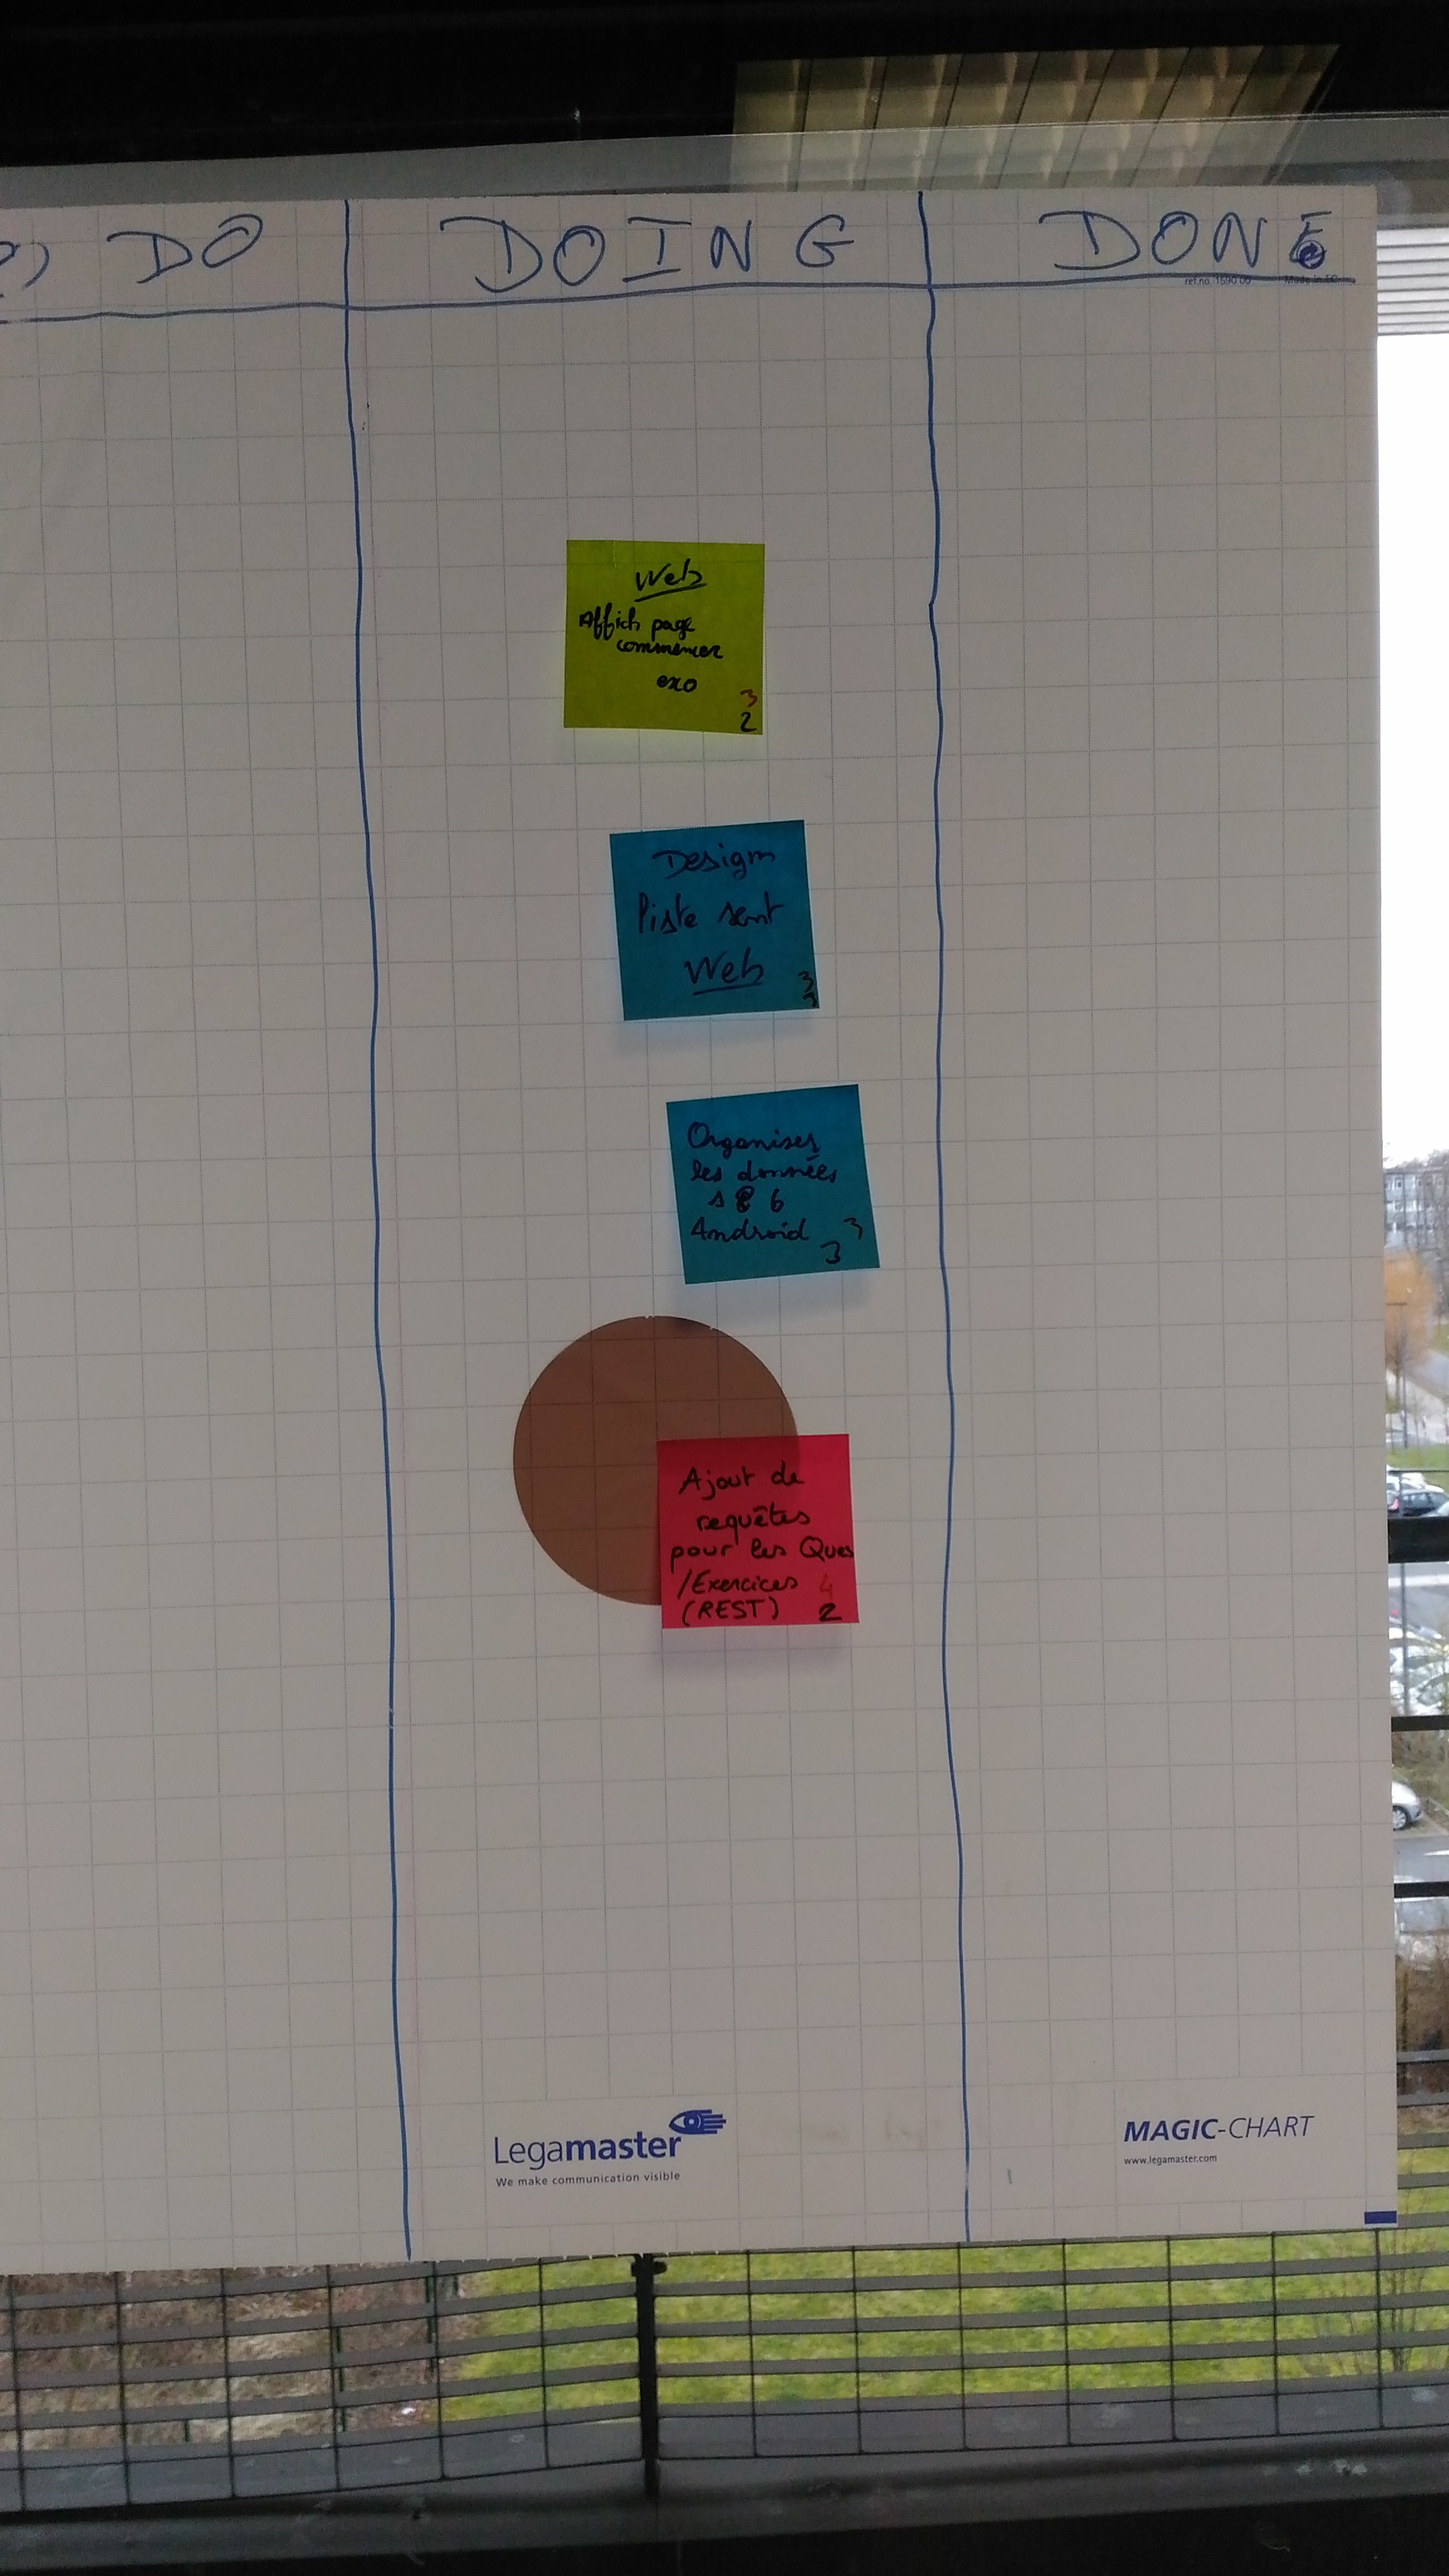 DO
DOING
DONE
ref.no. 1590 00
Web
Affich page
commencer
exo
3
2
Design
liste sent
Web
3
3
Organiser
les données
6
Android
3
3
Ajout de
requêtes
pour les Ques
/Exercices
4
(REST)
2
Legamaster
We make communication visible
MAGIC-CHART
www.legamaster.com